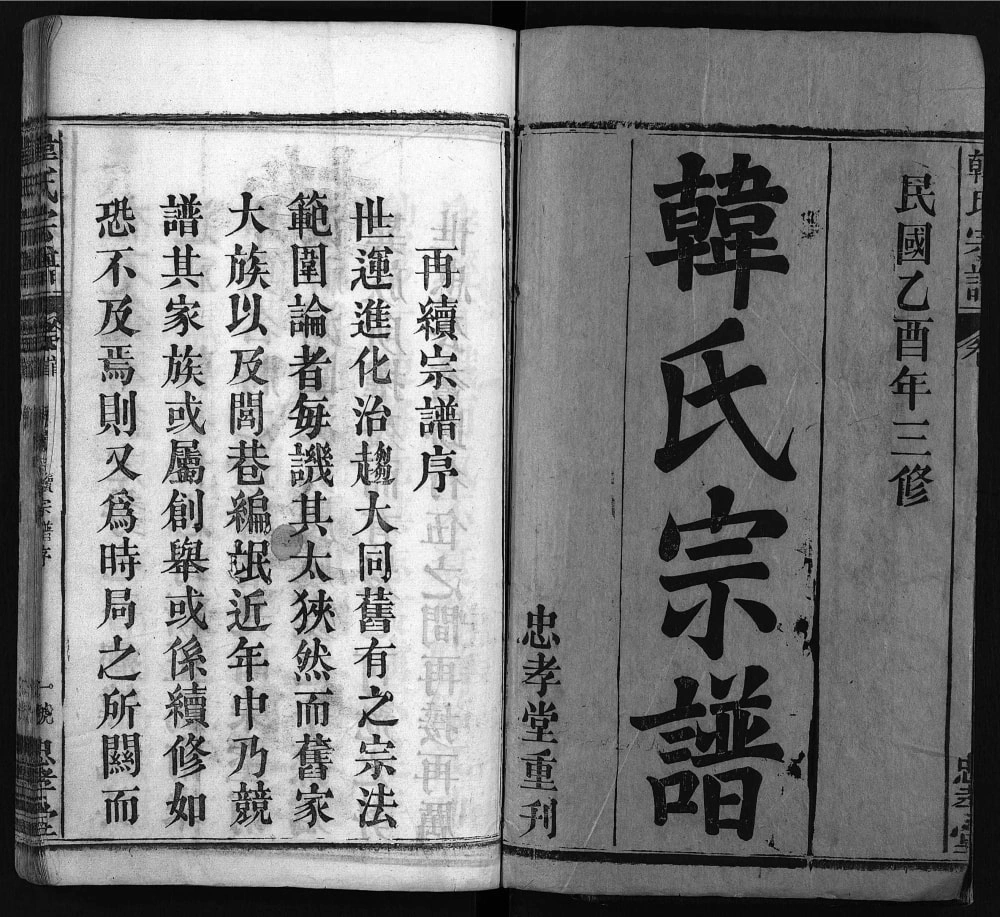 韓氏宗譜
民國乙酉年三修
韓氏宗譜
忠孝堂重刊
忠孝堂
再續宗譜序
世運進化治趨大同舊有之宗法
範圍論者每譏其太狹然而舊家
大族以及閭巷編氓近年中乃競
譜其家族或屬創舉或係續修如
恐不及焉則又為時局之所闗而
韓氏宗譜 卷首 續宗譜序 一號 忠孝堂